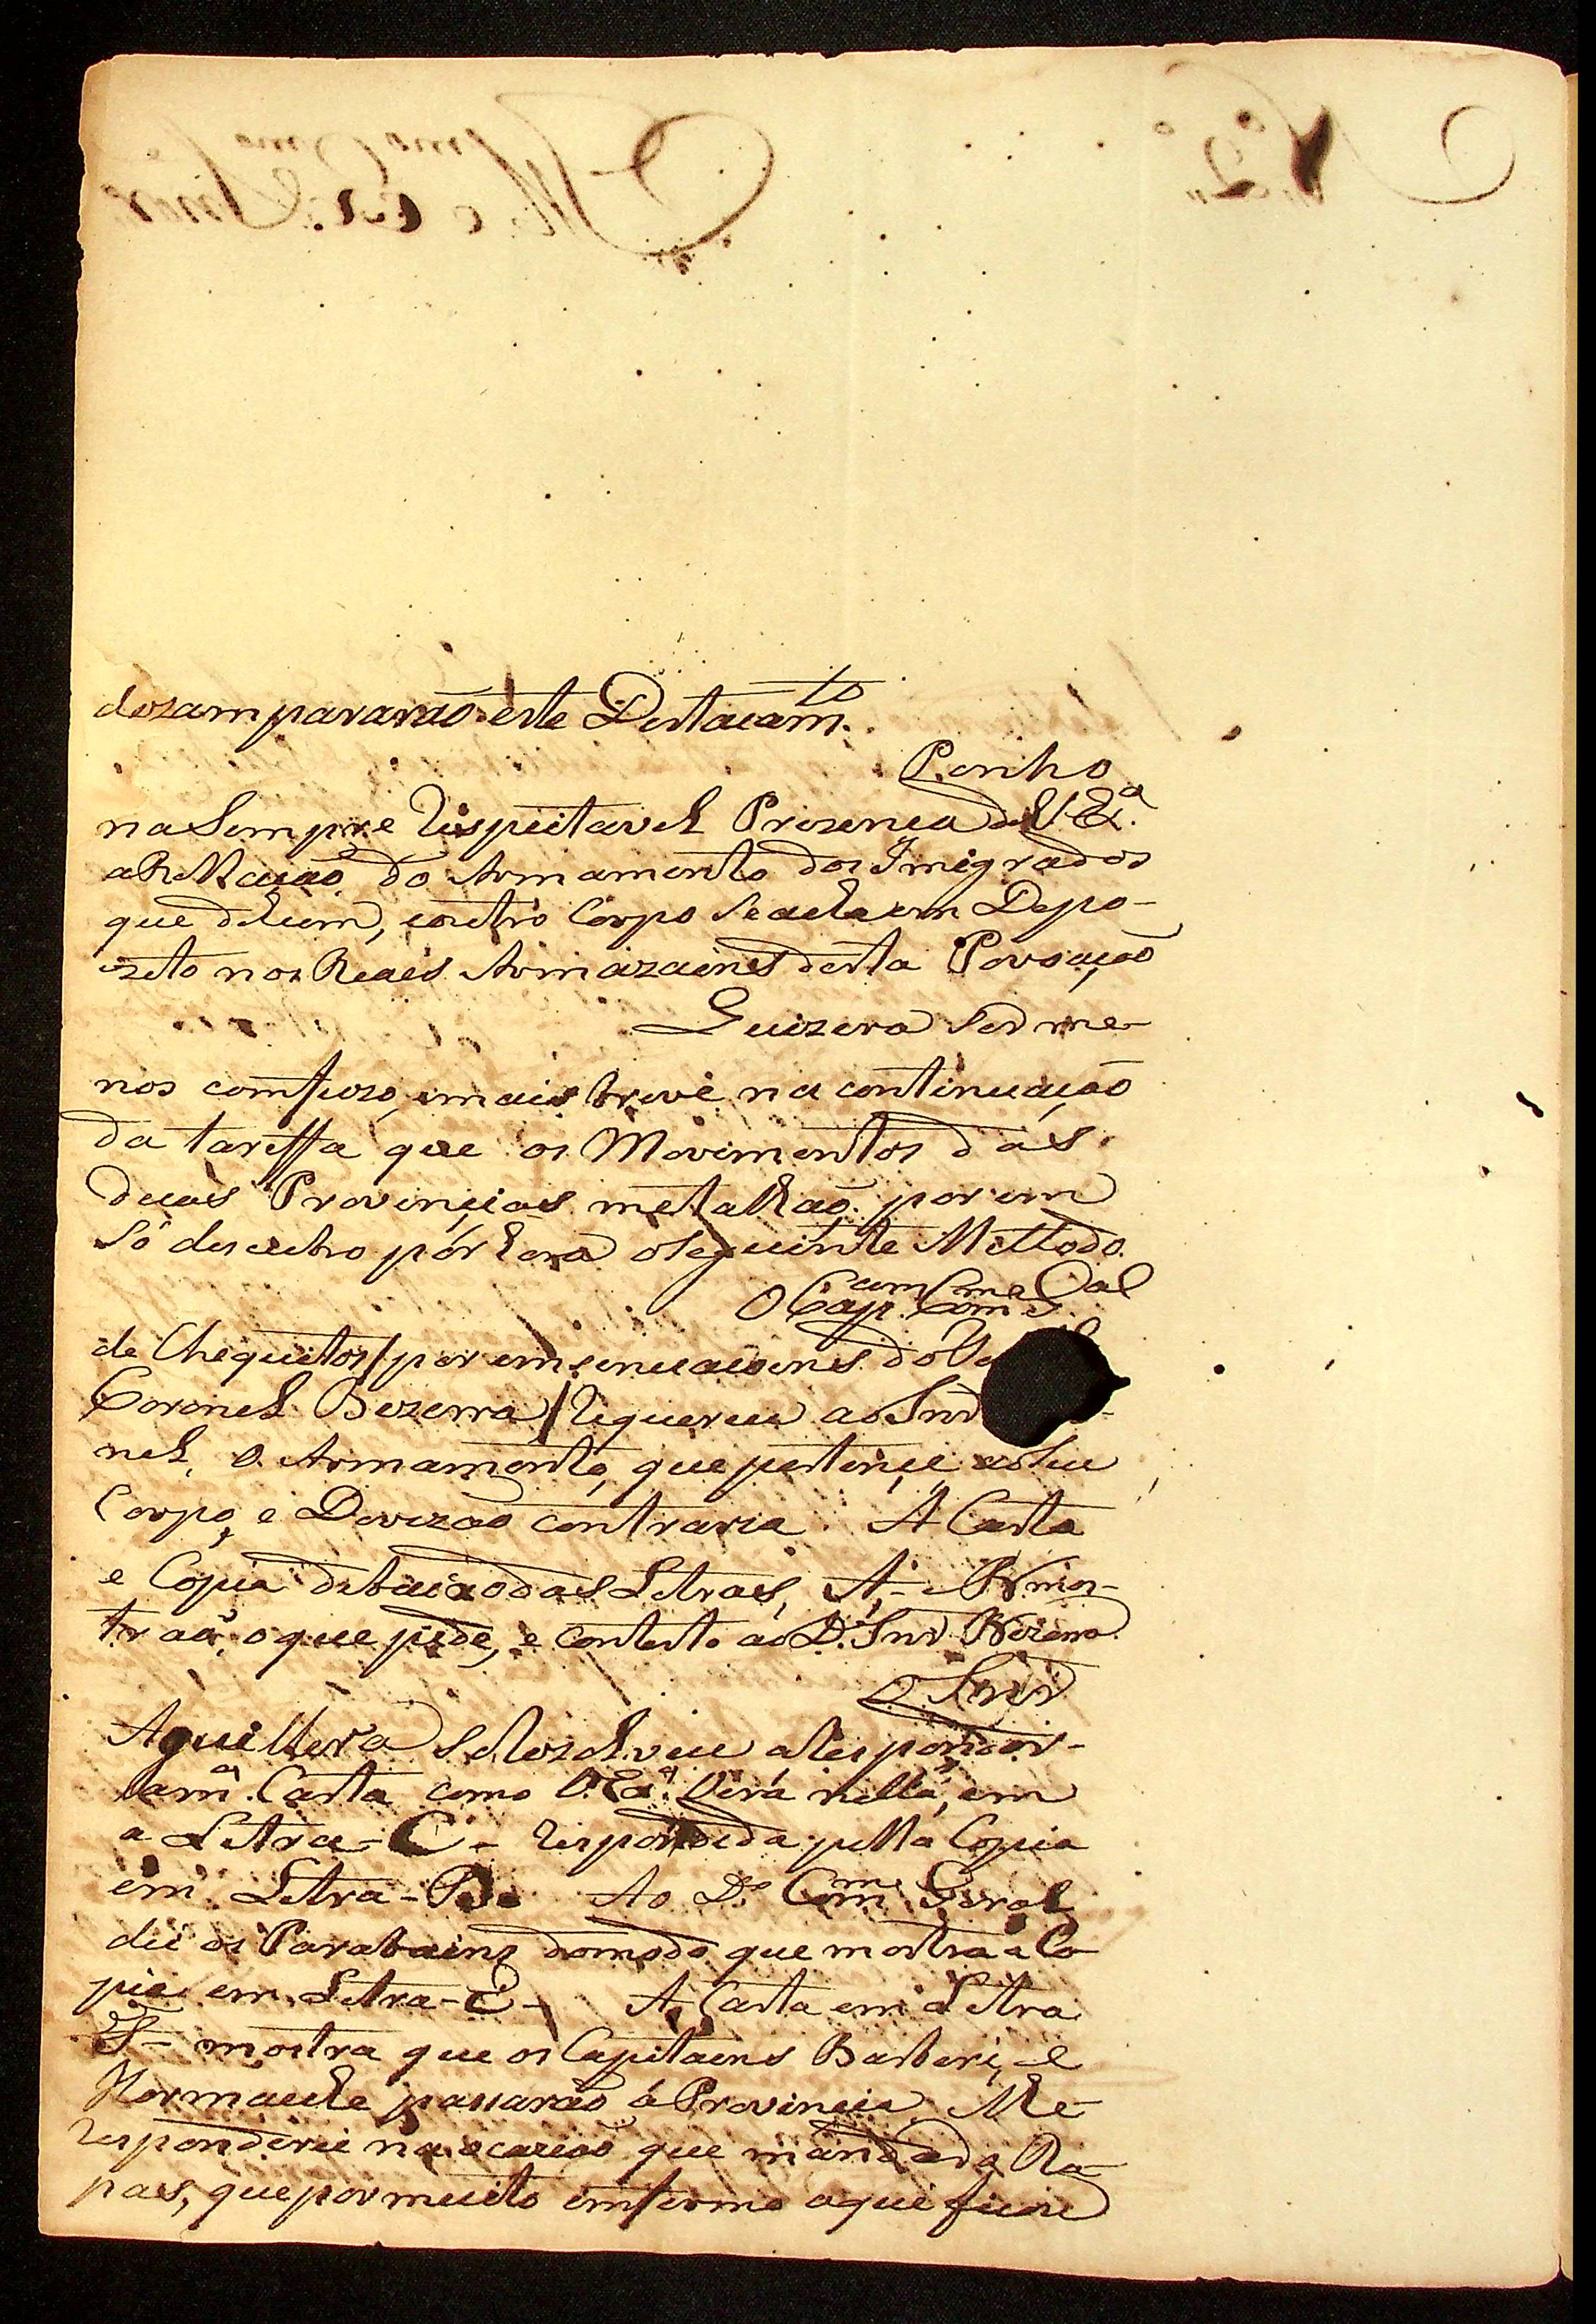 dezampararão este Destacam.to
Ponho
na Sempre Respeitavel Prezença de V. Ex.a
a Rellação do Armamento dos Imigrados
que de hum, e outro Corpo Se acha em Depo-
zeto nos Reaes Armazaens desta Povoação
Quizera Ser me-
nos comfuzo, e mais breve na continuação
da tareffa que os Movimentos das
duas Provinçias me talhão. porem
Só descubro por hora o Seguinte Methodo.
O Cap.am Com.me G.al
de Chequitos / por emsenuaçoens do
Coronel Bezerra / Requereu ao Snr
nel, o Armamento, que pertençe ao Seu
Corpo, e Devezão contraria. A Carta
e Copia debaixo das Letras, A, e B mos-
trão, o que pede, e contesto ao D.o Snr Bezerra.
O Snr
Aguillera Se Rezolveu a Responder-
Carta como V. Ex.a Verá nella, em
a Letra - C - Respondeda pella Copia
em Letra - D. Ao D.o Com.me Geral
dei os Parabains do modo que mostra a Co-
pia em Letra - E - A Carta em Letra
F - mostra que os Capitaens Barberi, e
passarão á Provincia. Me
Responderei na ocazião que mandada Ra-
pas, que por muito emfermo aqui ficou